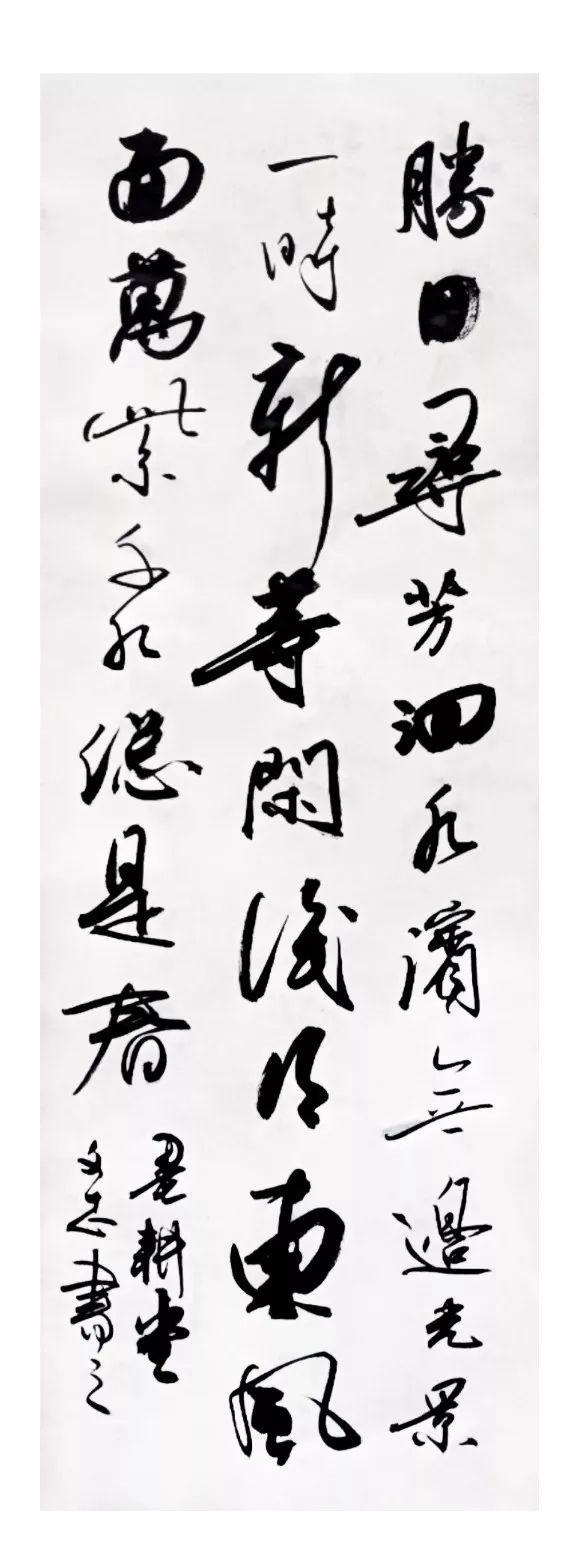 勝日尋芳泗水濱無邊光景
一時新等閑識得東風
面萬紫千紅總是春
墨耕堂
文志書之